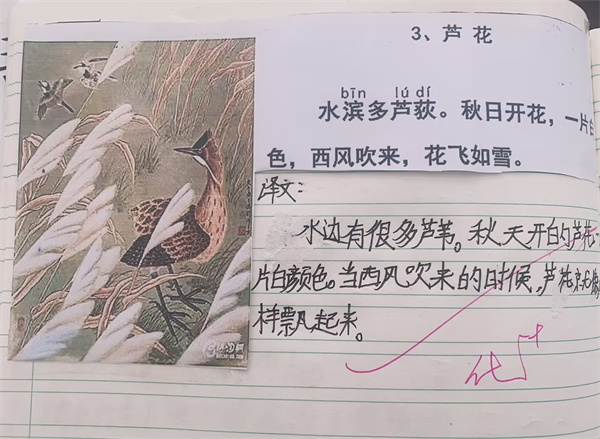 3、芦花
bīn lú dí
水滨多芦荻。秋日开花，一片白
色，西风吹来，花飞如雪。
译文：
水边有很多芦苇。秋天开的芦花一
片白颜色。当西风吹来的时候，芦花就像
样飘起来。